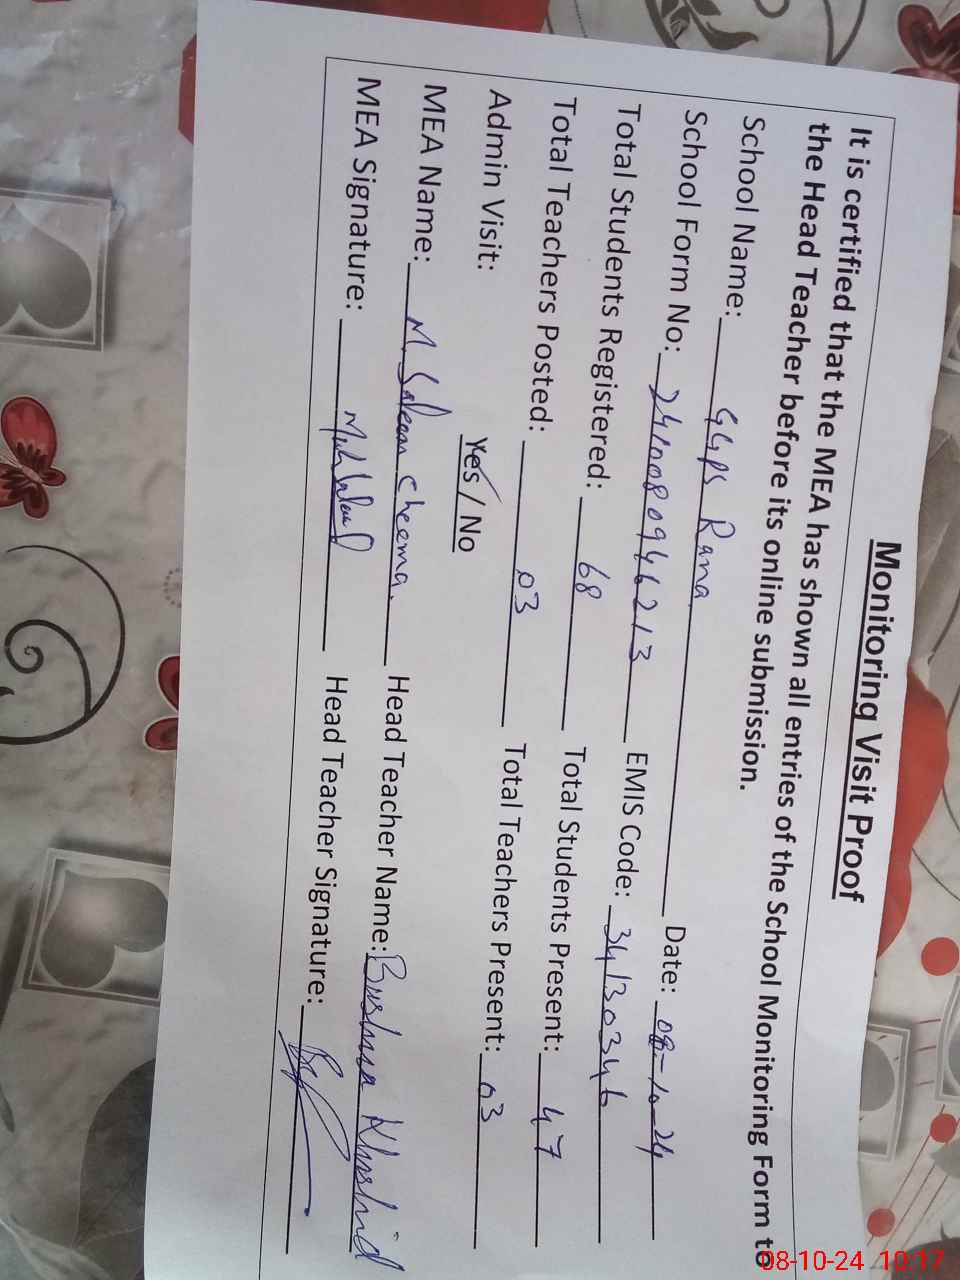 Monitoring Visit Proof
It is certified that the MEA has shown all entries of the School Monitoring Form to
the Head Teacher before its online submission.
School Name: GGPS Rana Date: 08-10-24
School Form No: 2410080946213 EMIS Code: 34130346
Total Students Registered: 68 Total Students Present: 47
Total Teachers Posted: 03 Total Teachers Present: 03
Admin Visit: Yes / No
MEA Name: M. Saleem Cheema. Head Teacher Name: Bushra Khurshid
MEA Signature: Head Teacher Signature:
08-10-24 10:17